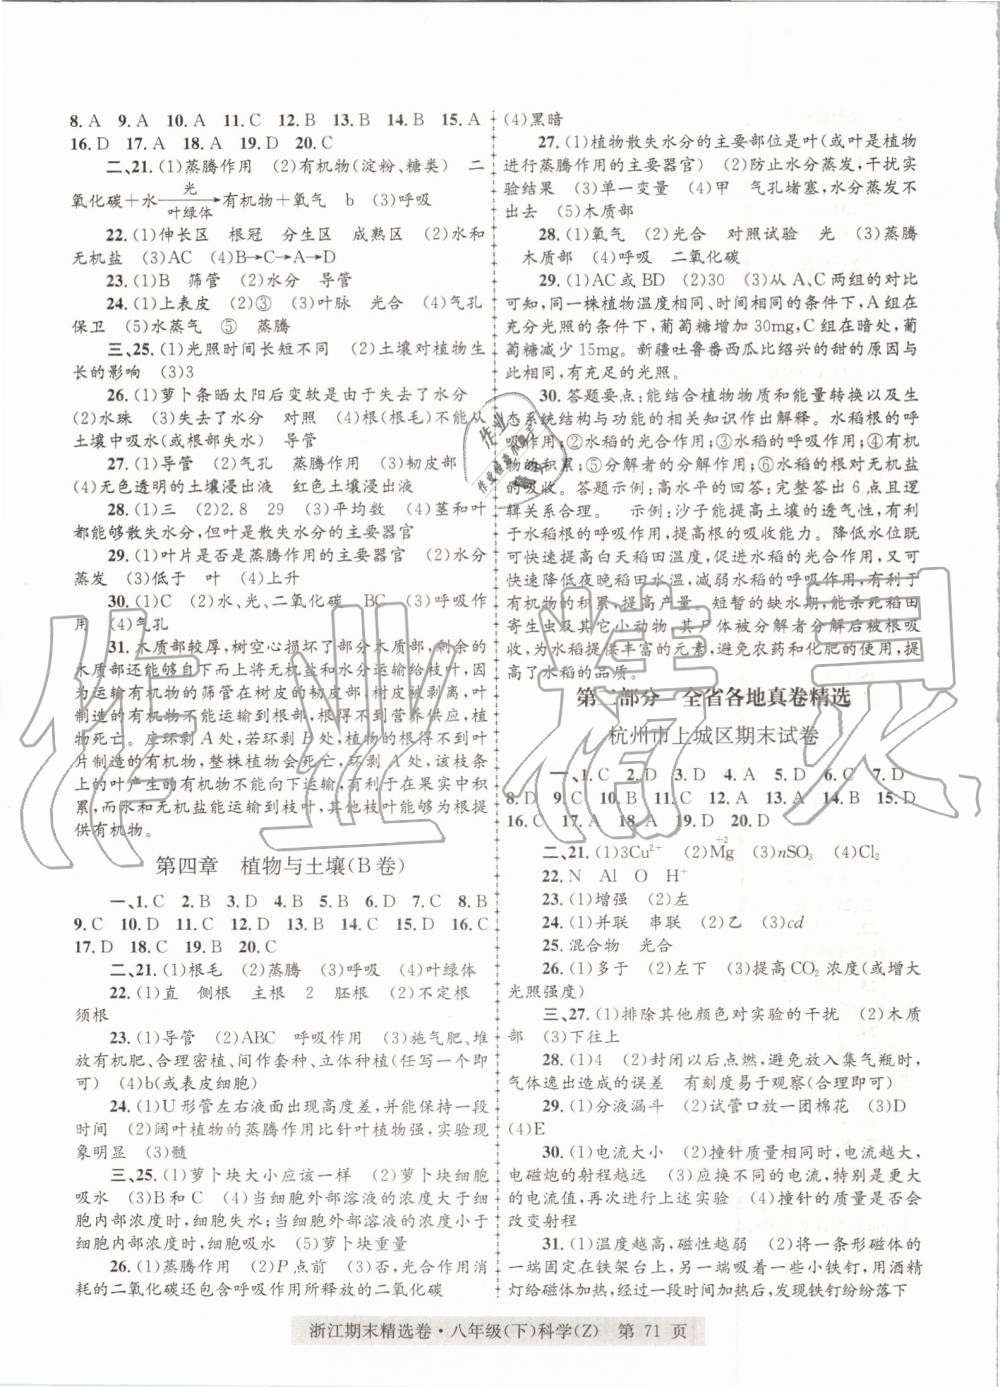 8. A 9. A 10. A 11. C 12. B 13. B 14. B 15. A
16. D 17. A 18. A 19. D 20. C
二、21. (1)蒸腾作用 (2)有机物(淀粉、糖类) 二
氧化碳＋水 光 叶绿体 →有机物＋氧气 b (3)呼吸
22. (1)伸长区 根冠 分生区 成熟区 (2)水和
无机盐 (3)AC (4)B→C→A→D
23. (1)B 筛管 (2)水分 导管
24. (1)上表皮 (2)③ (3)叶脉 光合 (4)气孔
保卫 (5)水蒸气 ⑤ 蒸腾
三、25. (1)光照时间长短不同 (2)土壤对植物生
长的影响 (3)3
26. (1)萝卜条晒太阳后变软是由于失去了水分
(2)水珠 (3)失去了水分 对照 (4)根(根毛)不能从
土壤中吸水(或根部失水) 导管
27. (1)导管 (2)气孔 蒸腾作用 (3)韧皮部
(4)无色透明的土壤浸出液 红色土壤浸出液
28. (1)三 (2)2.8 29 (3)平均数 (4)茎和叶
都能够散失水分，但叶是散失水分的主要器官
29. (1)叶片是否是蒸腾作用的主要器官 (2)水分
蒸发 (3)低于 叶 (4)上升
30. (1)C (2)水、光、二氧化碳 BC (3)呼吸作
用 (4)气孔
31. 木质部较厚，树空心损坏了部分木质部，剩余的
木质部还能够自下而上将无机盐和水分运输给枝叶，因
为运输有机物的筛管在树皮的韧皮部，树皮被剥离，叶
制造的有机物不能运输到根部，根得不到营养供应，植
物死亡。应环剥 A 处，若环剥 B 处，根得不到叶
片制造的有机物，整株植物会死亡，环剥 A 处，该枝条
上的叶产生的有机物不能向下运输，有利于在果实中积
累，而水和无机盐能运输到枝叶，其他枝叶可以为根提
供有机物。
第四章 植物与土壤(B卷)
一、1. C 2. B 3. D 4. B 5. B 6. D 7. C 8. B
9. C 10. D 11. D 12. D 13. D 14. C 15. C 16. C
17. D 18. C 19. B 20. C
二、21. (1)根毛 (2)蒸腾 (3)呼吸 (4)叶绿体
22. (1)直 侧根 主根 2 胚根 (2)不定根
须根
23. (1)导管 (2)ABC 呼吸作用 (3)施气肥、堆
放有机肥、合理密植、间作套种、立体种植(任写一个即
可) (4)b(或表皮细胞)
24. (1)U 形管左右液面出现高度差，并能保持一段
时间 (2)阔叶植物的蒸腾作用比针叶植物强，实验现
象明显 (3)髓
三、25. (1)萝卜块大小应该一样 (2)萝卜块细胞
吸水 (3)B和C (4)当细胞外部溶液的浓度大于细
胞内部浓度时，细胞失水；当细胞外部溶液的浓度小于
细胞内部浓度时，细胞吸水 (5)萝卜块重量
26. (1)蒸腾作用 (2)P点前 (3)否，光合作用消
耗的二氧化碳还包含呼吸作用所释放的二氧化碳
(4)黑暗
27. (1)植物散失水分的主要部位是叶(或叶是植物
进行蒸腾作用的主要器官) (2)防止水分蒸发，干扰实
验结果 (3)单一变量 (4)甲 气孔堵塞，水分蒸发不
出去 (5)木质部
28. (1)氧气 (2)光合 对照试验 光 (3)蒸腾
木质部 (4)呼吸 二氧化碳
29. (1)AC或BD (2)30 (3)从A、C两组的对比
可知，同一株植物温度相同、时间相同的条件下，A 组在
充分光照的条件下，葡萄糖增加 30mg，C 组在暗处，葡
萄糖减少 15mg。新疆吐鲁番西瓜比绍兴的甜的原因与
此相同，有充足的光照。
30. 答题要点：能结合植物物质和能量转换以及生
态系统结构与功能的相关知识作出解释。水稻根的呼
吸作用；②水稻的光合作用；③水稻的呼吸作用；④有机
物的积累；⑤分解者的分解作用；⑥水稻的根对无机盐
的吸收。答题示例：高水平的回答：完整答出 6 点且逻
辑关系合理。 示例：沙子能提高土壤的透气性，有利
于水稻根的呼吸作用，提高根的吸收能力。降低水位
可快速提高白天稻田温度，促进水稻的光合作用，又可
快速降低夜晚稻田水温，减弱水稻的呼吸作用，有利于
有机物的积累，提高产量。短暂的缺水期，能杀死稻田
寄生虫及其它小动物，其尸体被分解者分解后被根吸
收，为水稻提供丰富的元素，避免农药和化肥的使用，提
高了水稻的品质。
第二部分 全省各地真卷精选
杭州市上城区期末试卷
一、1. C 2. D 3. D 4. A 5. D 6. C 7. D
8. D 9. C 10. B 11. C 12. A 13. A 14. B 15. D
16. C 17. A 18. A 19. D 20. D
二、21. (1)3Cu²⁺ (2)Mg(+2) (3)nSO₃ (4)Cl₂
22. N Al O H⁺
23. (1)增强 (2)左
24. (1)并联 串联 (2)乙 (3)cd
25. 混合物 光合
26. (1)多于 (2)左下 (3)提高 CO₂ 浓度(或增大
光照强度)
三、27. (1)排除其他颜色对实验的干扰 (2)木质
部 (3)下往上
28. (1)4 (2)封闭以后点燃，避免放入集气瓶时，
气体逸出造成的误差 有刻度易于观察(合理即可)
29. (1)分液漏斗 (2)试管口放一团棉花 (3)D
(4)E
30. (1)电流大小 (2)撞针质量相同时，电流越大，
电磁炮的射程越远 (3)应换不同的电流，特别是更大
的电流值，再次进行上述实验 (4)撞针的质量是否会
改变射程
31. (1)温度越高，磁性越弱 (2)将一条形磁体的
一端固定在铁架台上，另一端吸着一些小铁钉，用酒精
灯给磁体加热，经过一段时间加热后，发现铁钉纷纷落下
浙江期末精选卷·八年级(下)科学(Z) 第 71 页
作业精灵